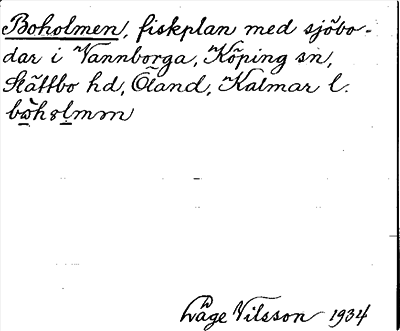 Boholmen, fiskplan med sjöbo-
dar i Vannborga, Köping sn,
Slättbo hd, Öland, Kalmar l.
Låge Nilsson 1934